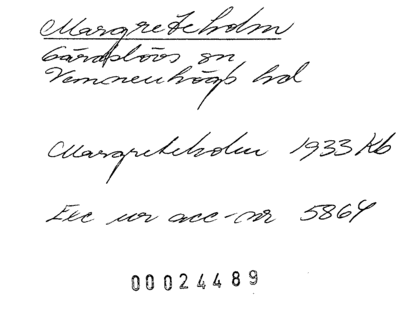 Margreteholm
Gärdslövs sn
Vemmenhögs hd
Margreteholm 1933 Kb
Exc ur acc-nr 5864
00024489